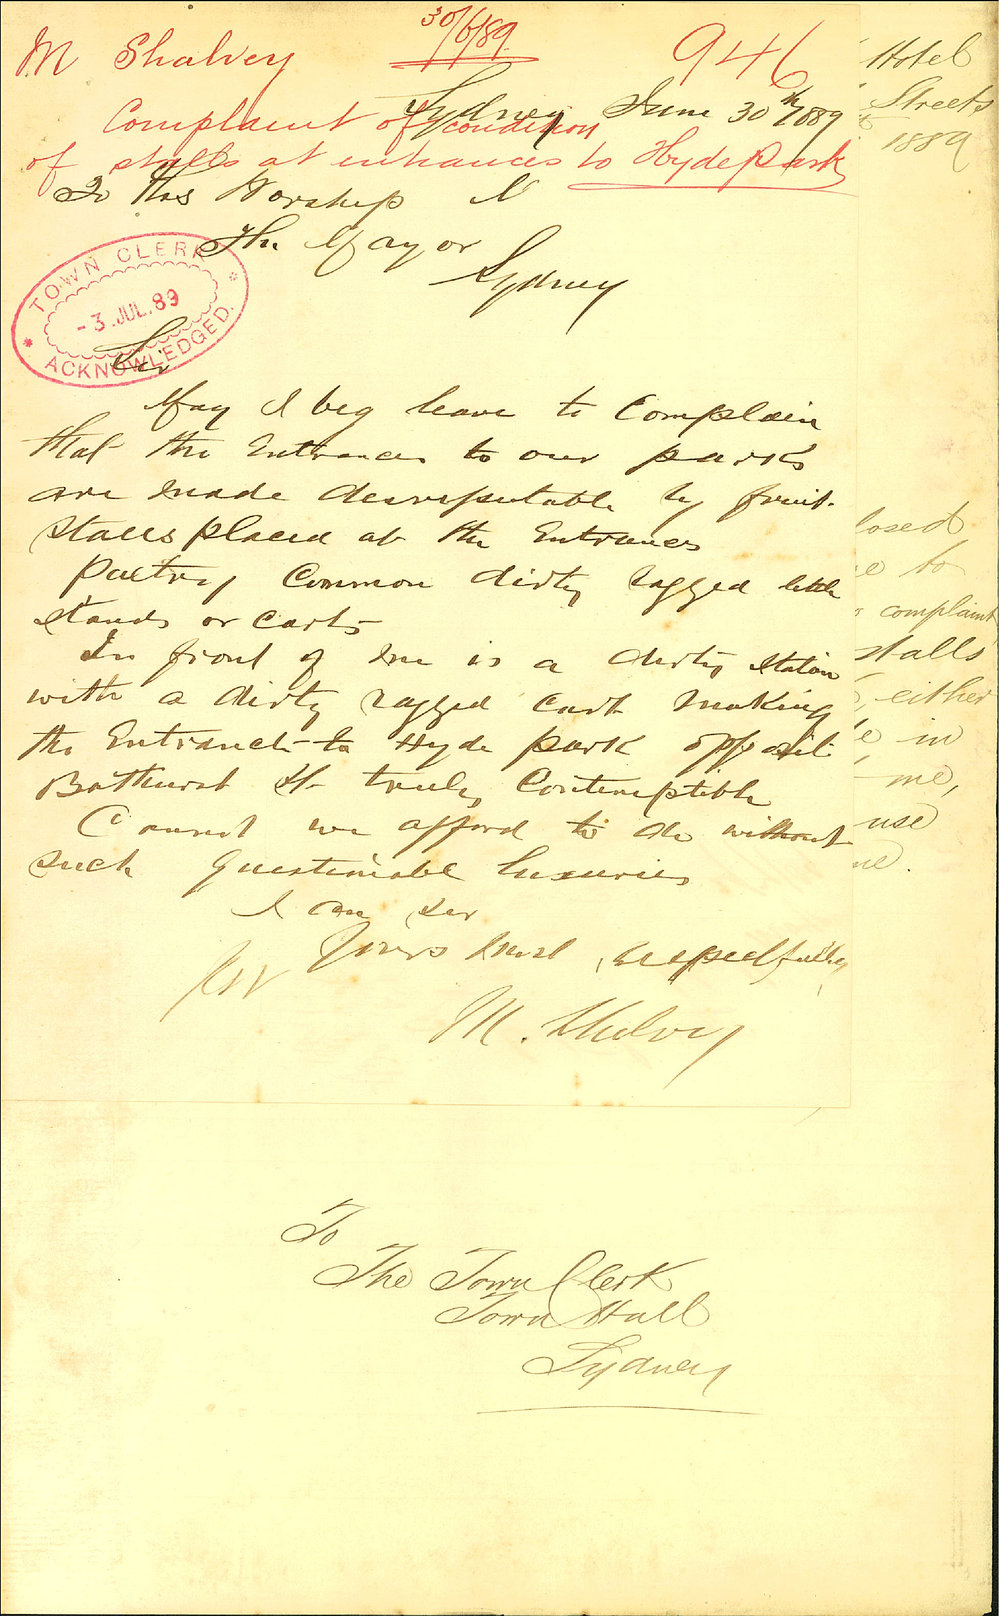 30/6/89
M Shalvey 946
Complaint of condition
of stalls at entrances to Hyde Park
Sydney June 30th 1889
To His Worship
The Mayor
Sydney
TOWN CLERK
- 3. JUL. 89
ACKNOWLEDGED.
Sir
May I beg leave to Complain
that the Entrances to our parks
are made desreputable by fruit
stalls placed at the Entrances
Common dirty ragged little
stands or carts
In front of me is a dirty station
with a dirty ragged cart making
the Entrance to Hyde park opposit
Bathurst St truly Contemptible
Cannot we afford to do without
such questionable luxuries
I am Sir
Yours most respectfully
M. Shalvey
To
The Town Clerk
Town Hall
Sydney
Hotel
Streets
1889
losed
to
complaint
stalls
either
in
me,
use